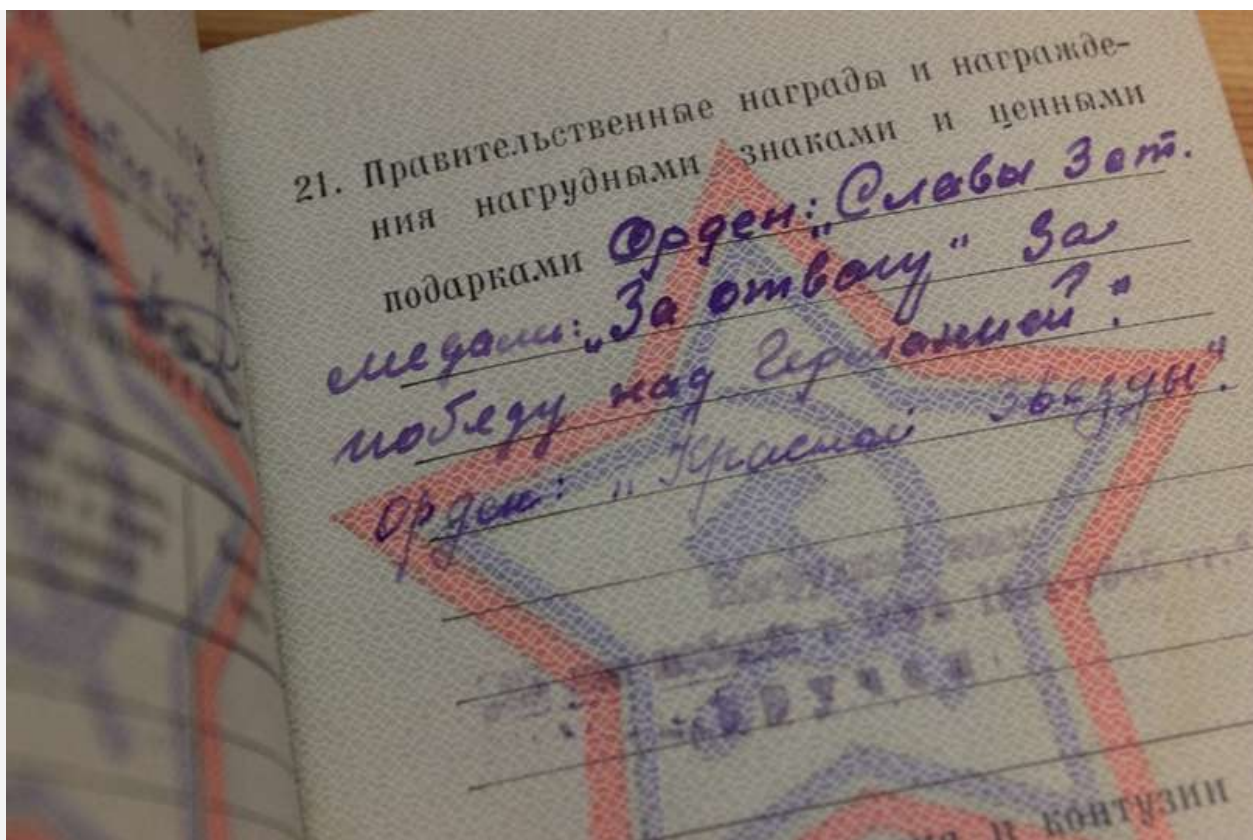 21. Правительственные награды и награжде-
ния нагрудными знаками и ценными
подарками Орден: „Славы 3 ст.
медали: „За отвагу“ За
победу над Германией".
Орден: „Красной звезды".
ВРУЧЕН
и контузии